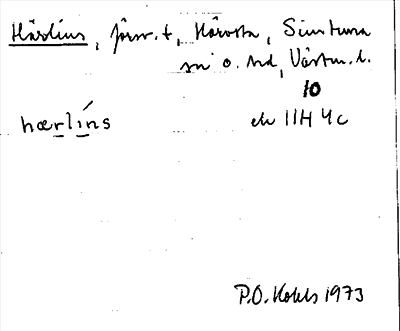 Härlins, förr. t, Härvsta, Simtuna
sn o. hd, Västm. l.
10
hærlíns ek 11H 4c
P.O. Kohls 1973